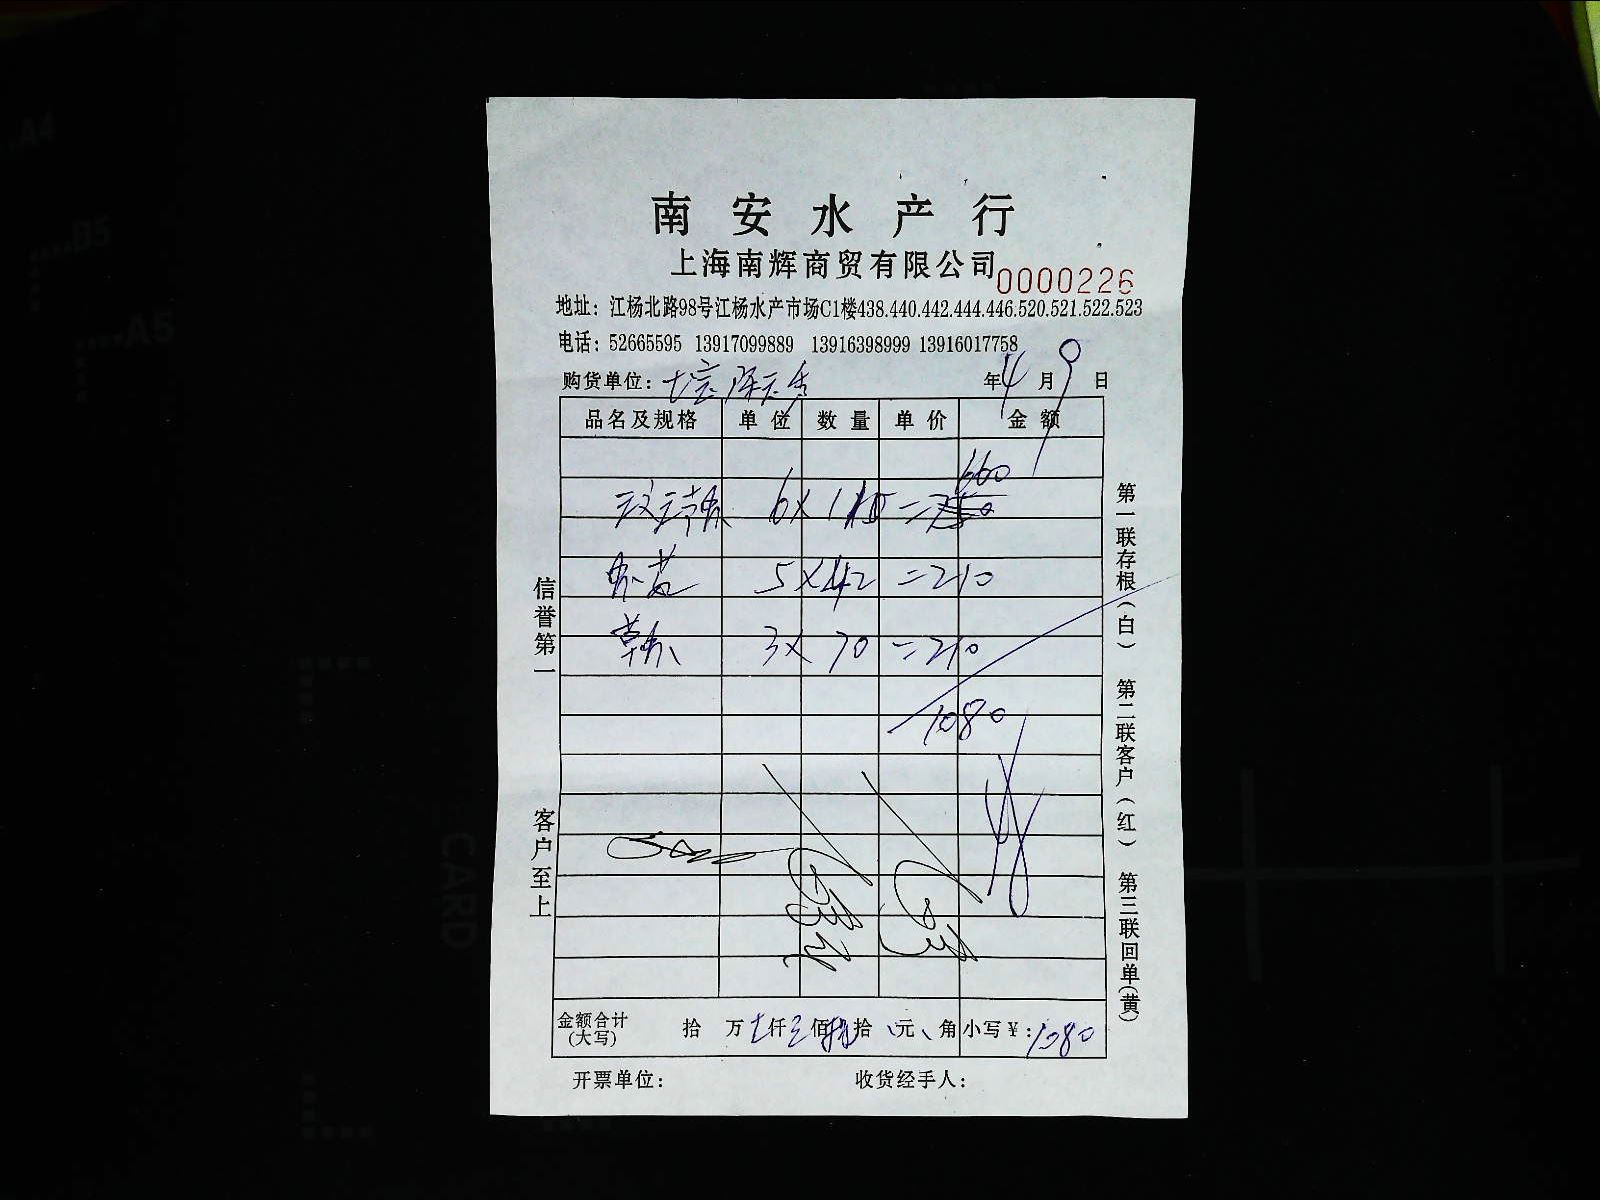 南安水产行
上海南辉商贸有限公司
0000226
地址：江杨北路98号江杨水产市场C1楼438.440.442.444.446.520.521.522.523
电话：52665595 13917099889 13916398999 13916017758
购货单位： 年4月9日
品名及规格 单位 数量 单价 金额
660
6× =
虾 5×42 =210
草虾 3×70 =210
1080
金额合计（大写） 拾 万 仟 佰 拾 元 角 小写￥：1080
开票单位： 收货经手人：
信誉第一 客户至上
第一联存根（白） 第二联客户（红） 第三联回单（黄）
A4
B5
A5
CARD